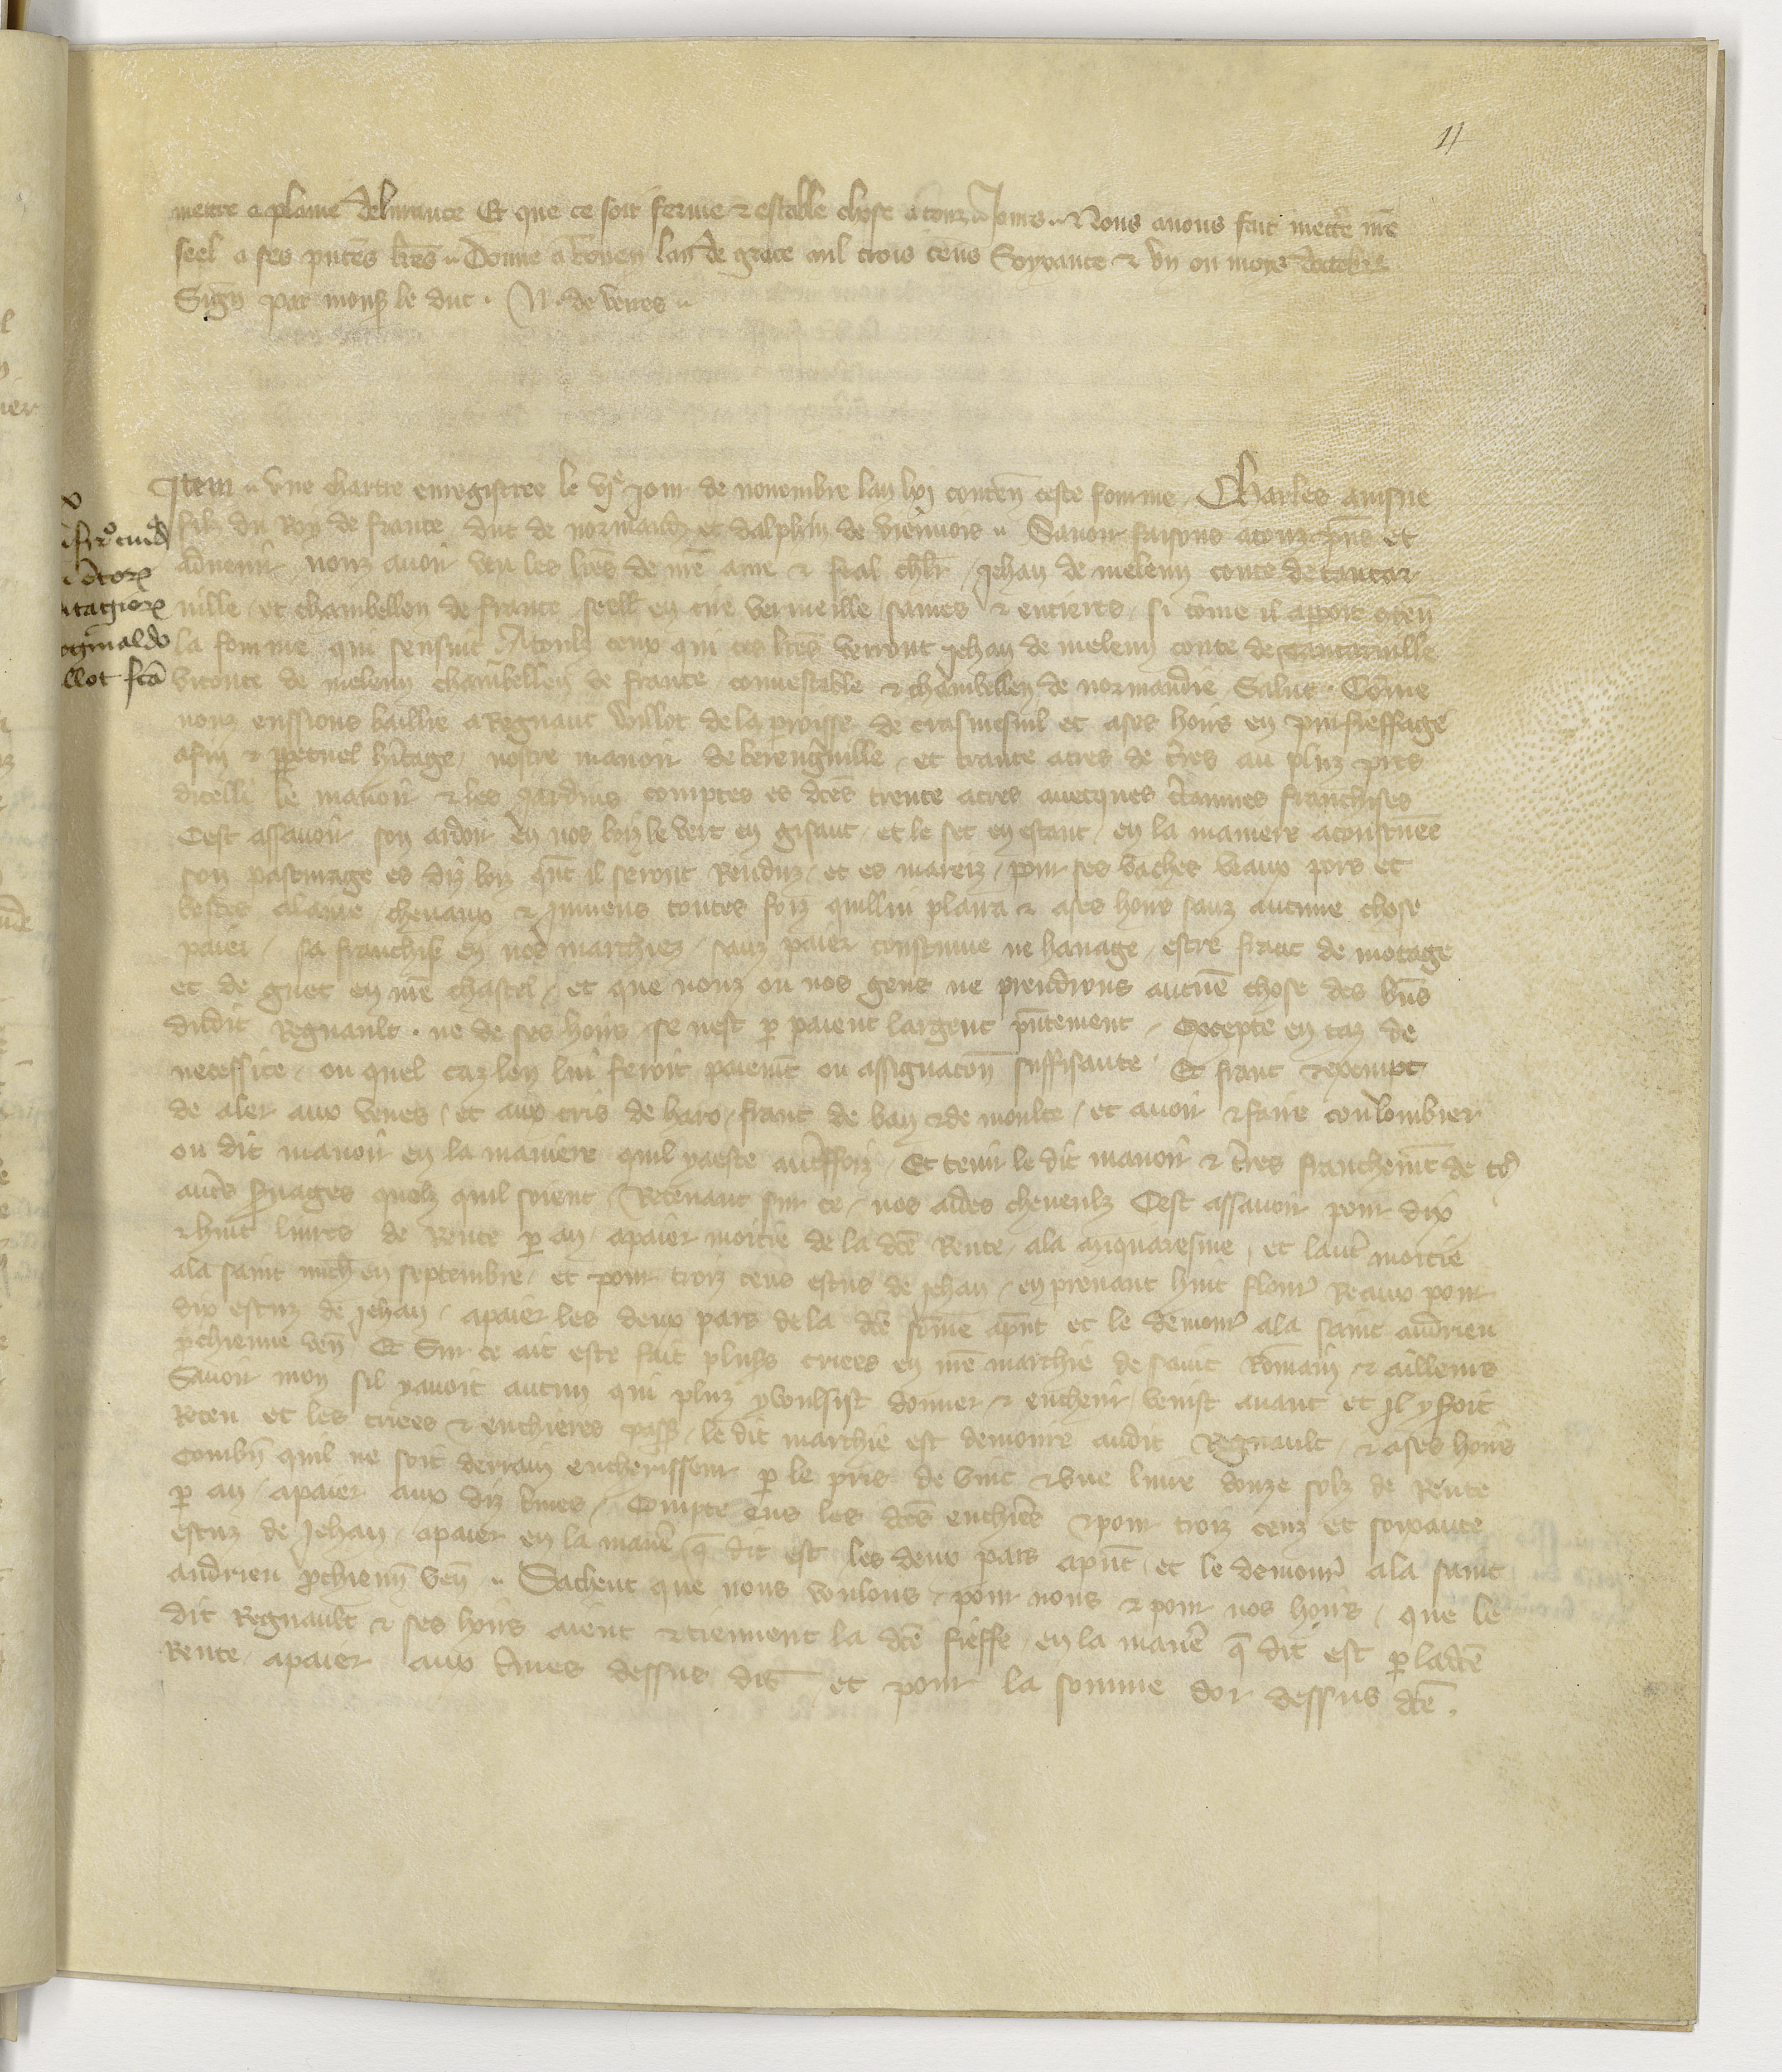 11
mettre a plaine deliurance Et que ce soit ferme & estable chose a touz Jours .. Nous auons fait mettre nre
seel a ses pntes lres .. Donne a Rouen lan de grace mil trois cens Soixante & vn ou moys doctobre
Sign par mons le duc . N . de veres ..
Item .. vne chartre enregistree le vj Jour de nouembre lan lxj conten ceste fourme Charles ainsne
filz du Roy de france duc de normandie et dalphin de viennois .. Sauoir faisons a touz pns et
aduenir nouz auoir veu les lres de nre ame & feal chlr Jehan de meleun conte de tancar
uille et chambellen de france seell en cire vermeille saines & entieres si come il apparoit conten
la fourme qui sensuit A touz ceux qui ces lres verront Jehan de meleun conte de tancaruille
viconte de meleun chambellen de france connestable & chambellen de normandie Salut Come
nouz eussions baillie a Regnaut Willot de la proisse de crasmesnil et a ses hoirs en pur fieffage
afin & ppetuel hitage nostre manoir de berenguille et trante acres de tres au pluz pres
dicelli le manoir & les Jardins comptes es dces trente acres auecques ctaines franchises
Cest assauoir son ardoir en nos boiz le vert en gisant et le sec en estant en la maniere acoustumee
son pasturage es diz boiz qnt il seront Renduz et es mareiz pour ses vaches veaux pors et
bestes alaine cheuaux & Jumens toutes foiz quil lui plaira & a ses hoirs sanz aucune chose
paier sa franchise en nos marchiez sanz paier coustume ne hauage estre franc de motage
et de guet en nre chastel et que nouz ou nos gens ne prendrons aucune chose des bns
dudit Regnault . ne de ses hoirs se nest p paient largent pntement Excepte en caz de
necessite ou quel caz len lui feroit paiemt ou assignacon suffisante Et franc & exempt
de aler aux venes et aux cris de haro franc de ban & de moulte et auoir & faire coulombier
ou dit manoir en la maniere quil y a este autreffoiz Et tenir le dit manoir & tres franchemt de to
autrs seruages quelz quil soient Retenant sur ce nos aides cheuelz Cest assauoir pour dix
& huit liures de Rente p an a paier moitie de la dce Rente a la myquaresme et lautr moitie
a la saint mich en septembre et pour troiz cens escus de Jehan en prenant huit flour Reaux pour
dix escuz de Jehan a paier les deux pars de la dce some apnt et le demour a la saint andrieu
pchienne ven Et Sur ce ait este fait plusrs criees en nre marchie de saint Romain & ailleurs
Sauoir mon sil y auoit aucun qui pluz y voulsist donner & encherir venist auant et Il y seroit
Receu et les criees & encheres pass le dit marchie est demoure audit Regnault & a ses hoirs
Combn quil ne soit derrain encherisseur p le pris de vint & vne liure douze solz de Rente
p an a paier aux diz tmes Compte ens les dces encheres & pour troiz cenz et soixante
escuz de Jehan a paier en la manre q dit est les deux pars apnt et le demour a la saint
andrieu pchienn ven .. Sachent que nous voulons pour nous & pour nos hoirs que le
dit Regnault & ses hoirs aient & tiennent la dce fieffe en la manre q dit est p la dce
Rente a paier aux tmes dessus diz et pour la somme dor dessus dce .